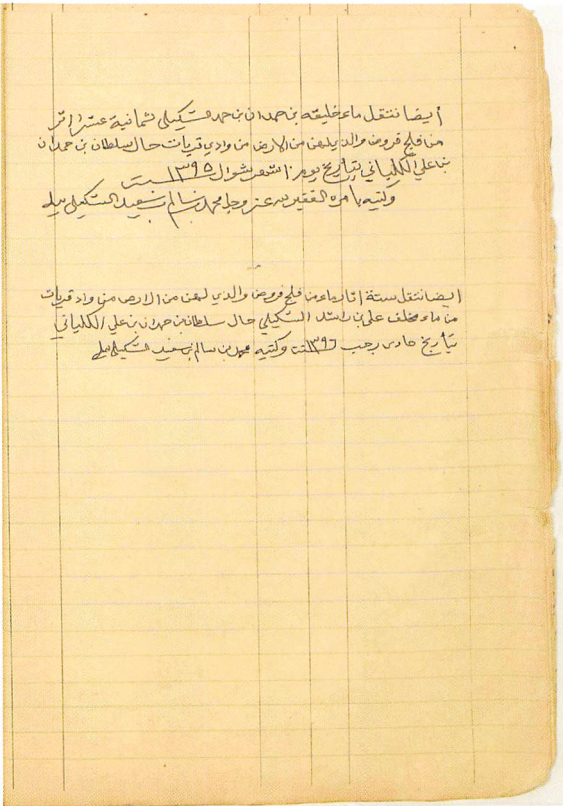 أيضا ننتقل ماء خليفه بن حمدان بن حمد الشكيلي ثمانية عشر اثر
من فلج فروض والذي يلهن من الارض من وادي قريات حال سلطان بن حمدان
بن علي الكلباني بتأريخ يوم شهر شوال ١٣٩٥
وكتبه بامره الفقير لله عز وجل محمد بن سالم بن سعيد الشكيلي بيده
ايضا ننتقل ستة اثار ماء من فلج فروض والذي لهن من الارض من واد قريات
من ماء مخلف علي بن راشد الشكيلي حال سلطان بن حمدان بن علي الكلباني
بتأريخ حادي رجب ١٣٩٦ وكتبه محمد بن سالم بن سعيد الشكيلي بيده